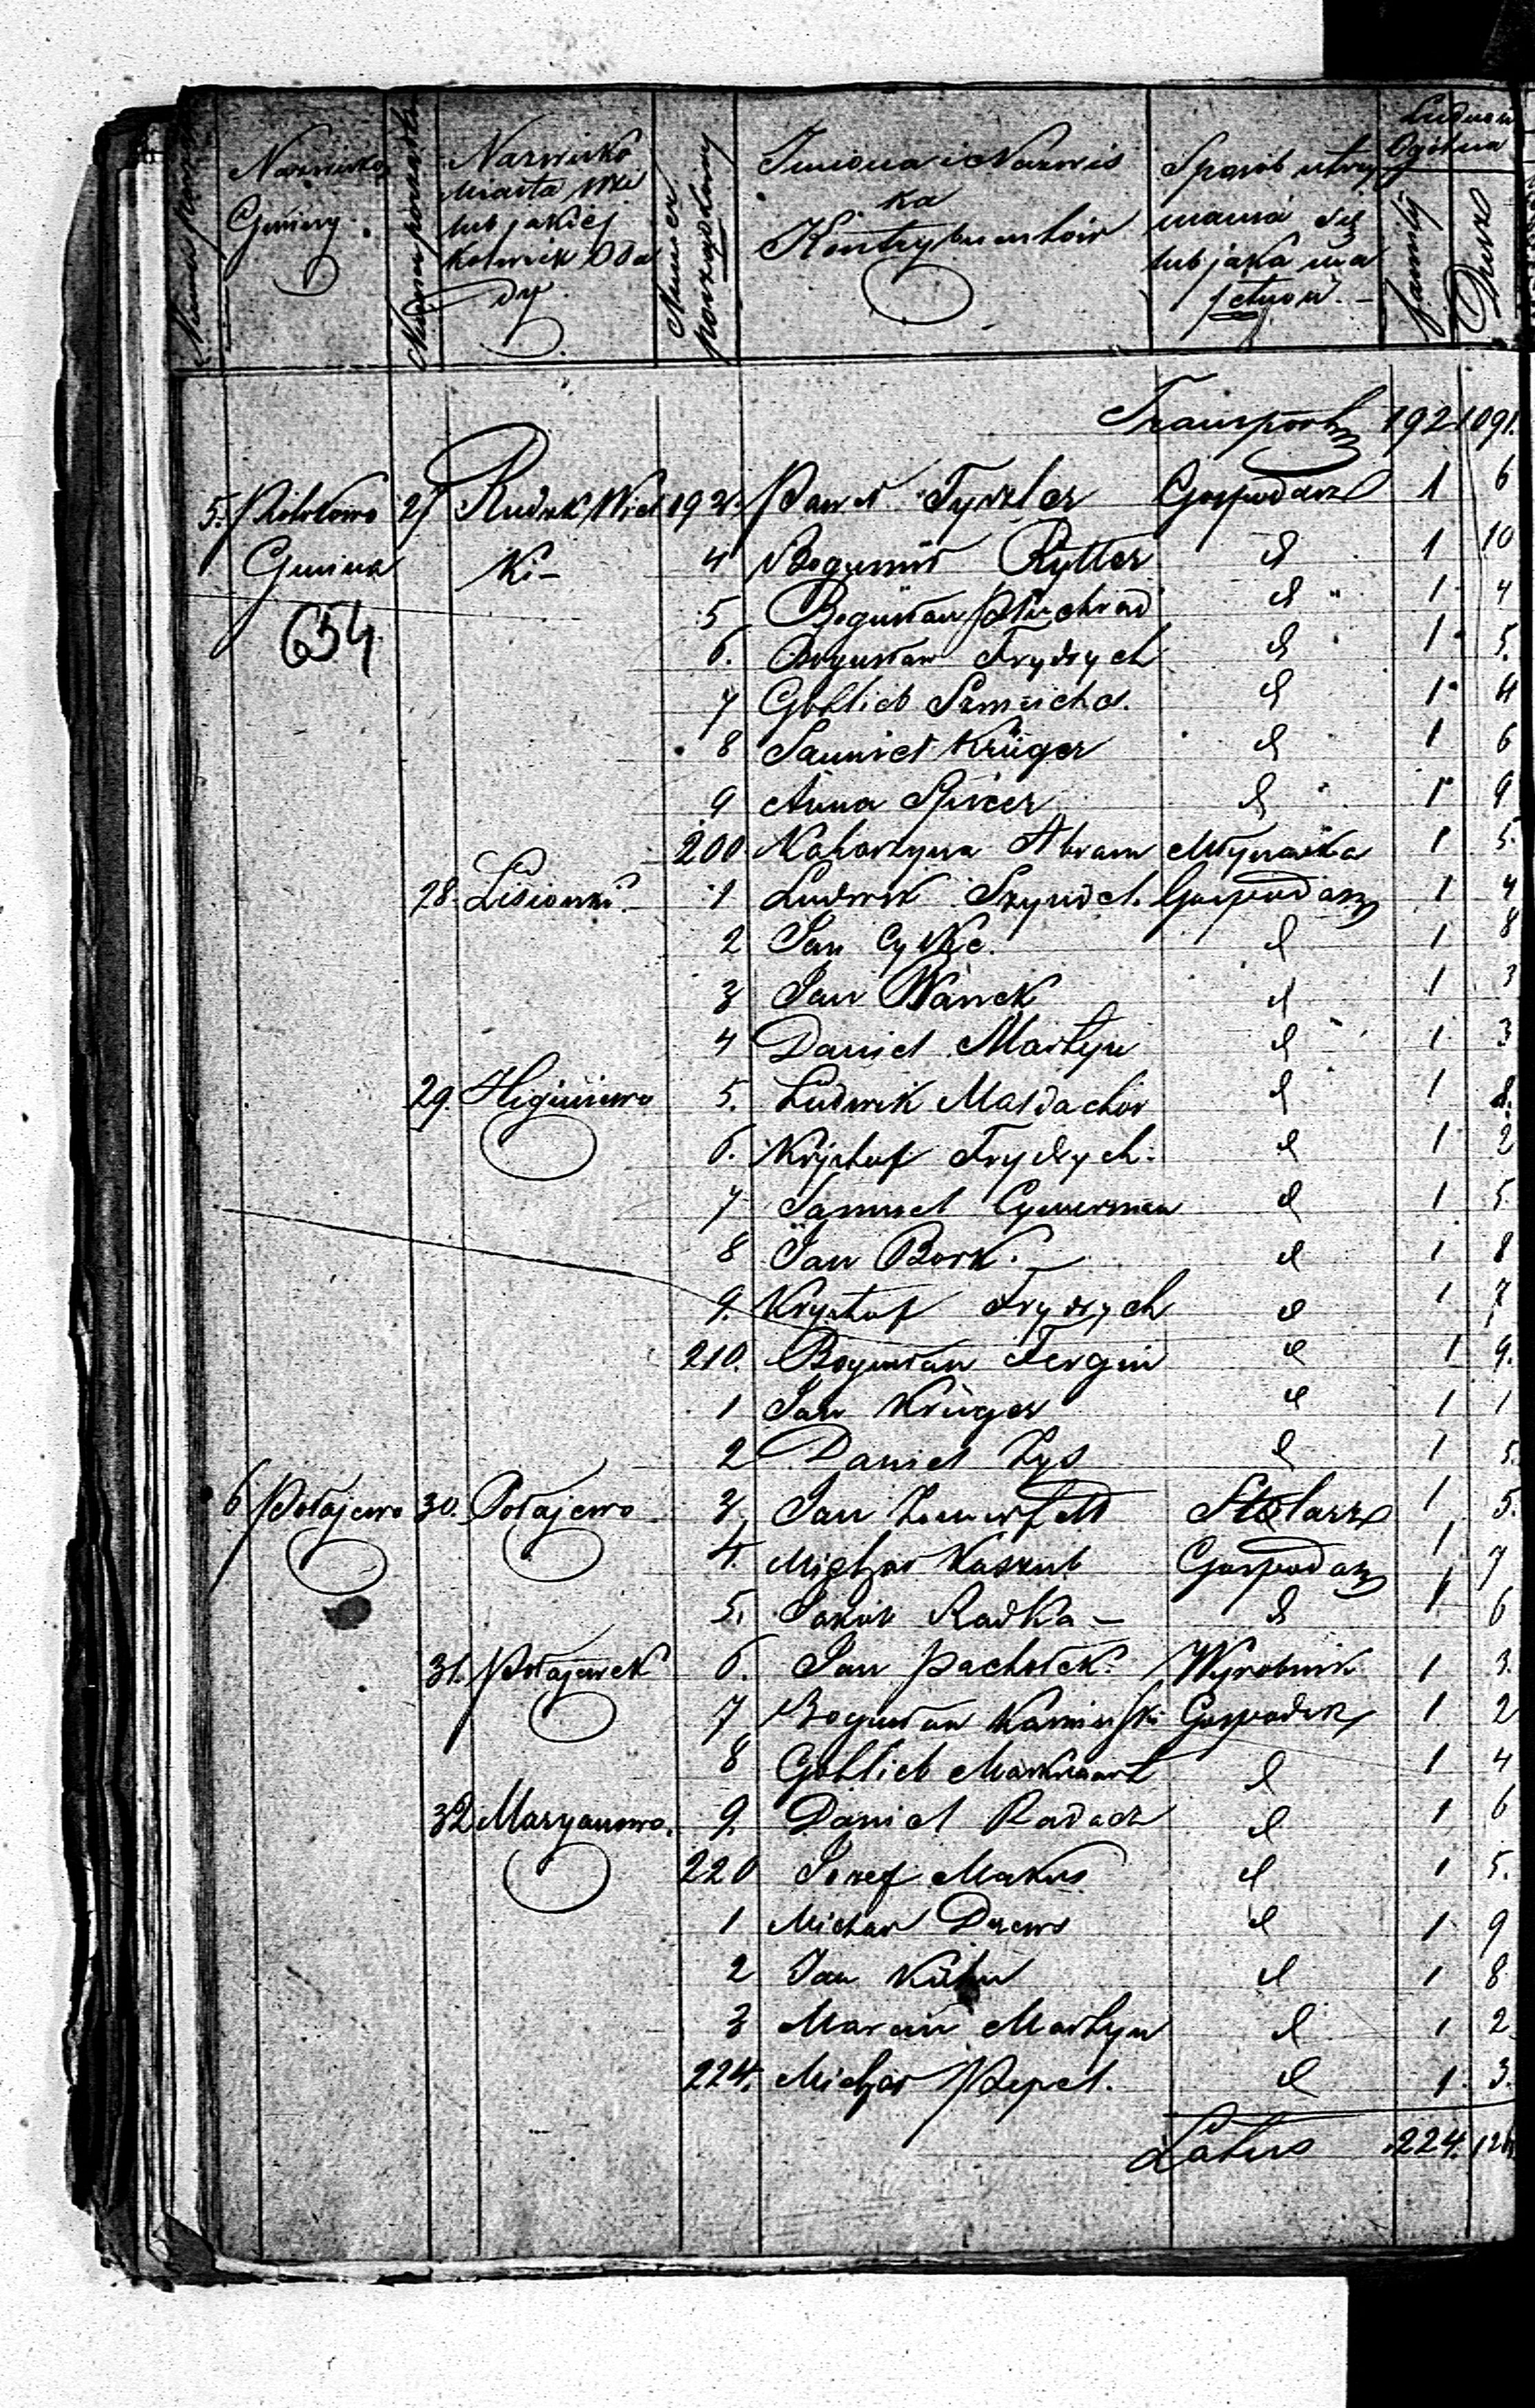 Nazwisko Gminy
Nazwisko Miasta Wsi lub jakiej Kolwiek Osady
Numer porządkowy
Imiona i Nazwiska Kontrybuentów
Sposób utrzymania się lub jaka ma
Ludność Ogólna
Familij
Dusz
Transport 192 1091.
5. Gmina 27 Rudzk Wielki 193. Paweł Tyszler Gospodarz 1 6
4 Bogumił Rytter d 1 10
654 5 Bogusław d 1 4
6. Bogusław Frydrych d 1 5.
7 Gotlieb d 1 4
8 Samuel Krüger d 1 6
9 Anna d 1 9
200. Katarzyna Abram Młynarka 1 5.
28. 1 Ludwik Szyndel. Gospodarz 1 4
2 Jan Cylke. d 1 8
3 Jan d 1 3
4 Daniel Martyn d 1 3
29. Higieniewo 5. Ludwik d 1 8.
6. Krysztof Frydrych. d 1 2
7 Samuel Cymerman d 1 5.
8 Jan Bork. d 1 8
9. Krysztof Frydrych d 1 7
210. Bogusław Fergin d 1 9.
1 Jan Krüger d 1 1
2 Daniel Zys d 1 5.
6 Połajewo 30. Połajewo 3. Jan Stolarz 1 5.
4. Michał Kaszub Gospodarz 1 7
5. Jakób Radka – d 1 6
31. Połajewek 6. Jan Pachołek. Wyrobnik 1 3.
7 Bogusław Kamiński Gospodarz 1 2
8 Gotlieb Markwart d 1 4
32 Maryanowo. 9. Daniel Radacz d 1 6
220 Józef Makus d 1 5.
1 Michał Drews d 1 9
2 Jan Kühn d 1 8
3 Marcin Martyn d 1 2
224. Michał Pepel. d 1 3.
Latus 224.